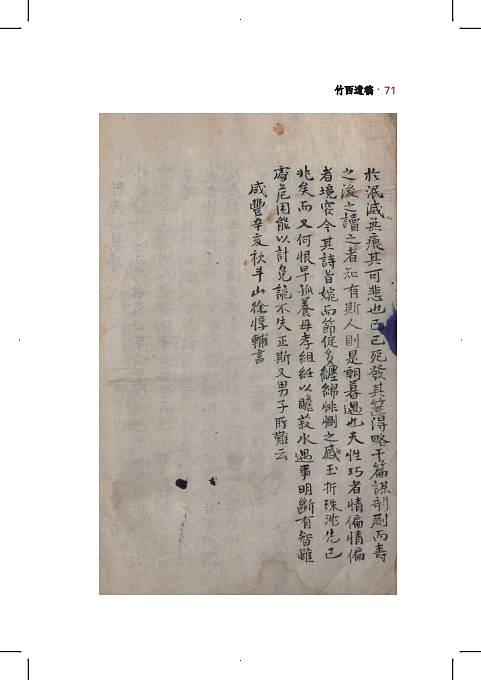 竹西遺稿 · 71
於泯滅無痕其可悲也已已死發其篋得略干篇謀剞劂而壽
之後之讀之者知有斯人則是朝暮遇也夫性巧者情偏情偏
者境窄今其詩旨婉而節促多纏綿悱惻之感玉折珠沈先已
兆矣而又何恨早孤養母孝組紝以贍菽水遇事明斷有智雖
處危困能以計免詭不失正斯又男子所難云
咸豐辛亥秋斗山徐惇輔書